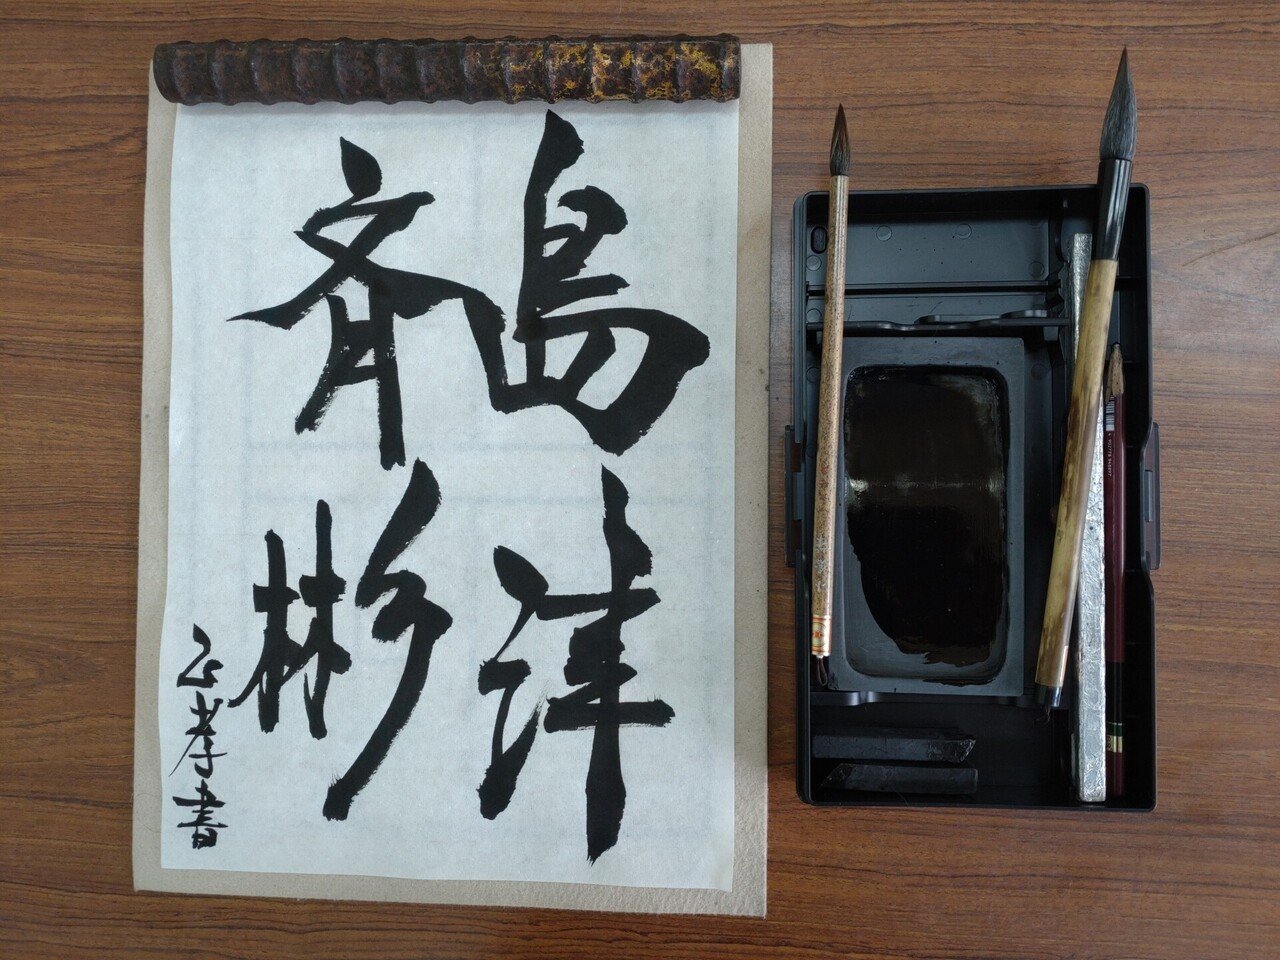 島津
斉彬
正孝書